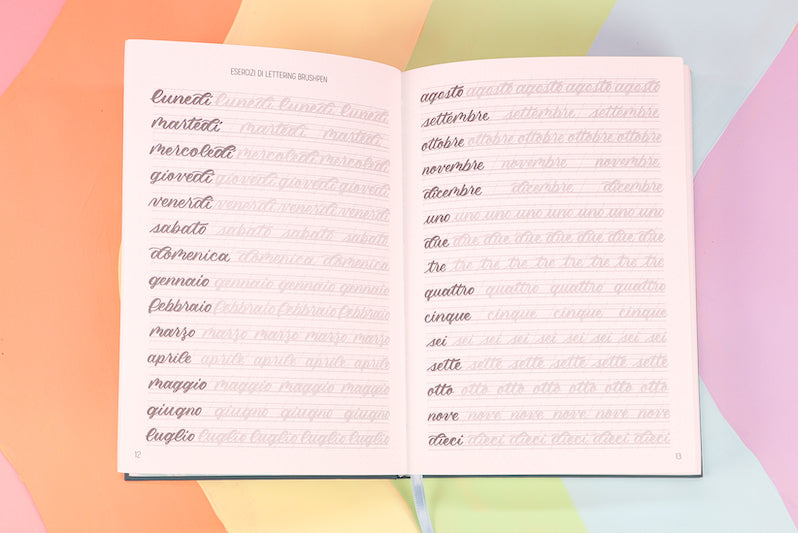 ESERCIZI DI LETTERING BRUSHPEN
lunedì lunedì lunedì lunedì
martedì martedì martedì
mercoledì mercoledì mercoledì
giovedì giovedì giovedì giovedì
venerdì venerdì venerdì venerdì
sabato sabato sabato sabato
domenica domenica domenica
gennaio gennaio gennaio gennaio
febbraio febbraio febbraio febbraio
marzo marzo marzo marzo marzo
aprile aprile aprile aprile aprile
maggio maggio maggio maggio
giugno giugno giugno giugno
luglio luglio luglio luglio luglio
12
agosto agosto agosto agosto agosto
settembre settembre settembre
ottobre ottobre ottobre ottobre ottobre
novembre novembre novembre
dicembre dicembre dicembre
uno uno uno uno uno uno uno uno
due due due due due due due due
tre tre tre tre tre tre tre tre
quattro quattro quattro quattro
cinque cinque cinque cinque
sei sei sei sei sei sei sei sei
sette sette sette sette sette sette
otto otto otto otto otto otto otto
nove nove nove nove nove nove
dieci dieci dieci dieci dieci dieci
13